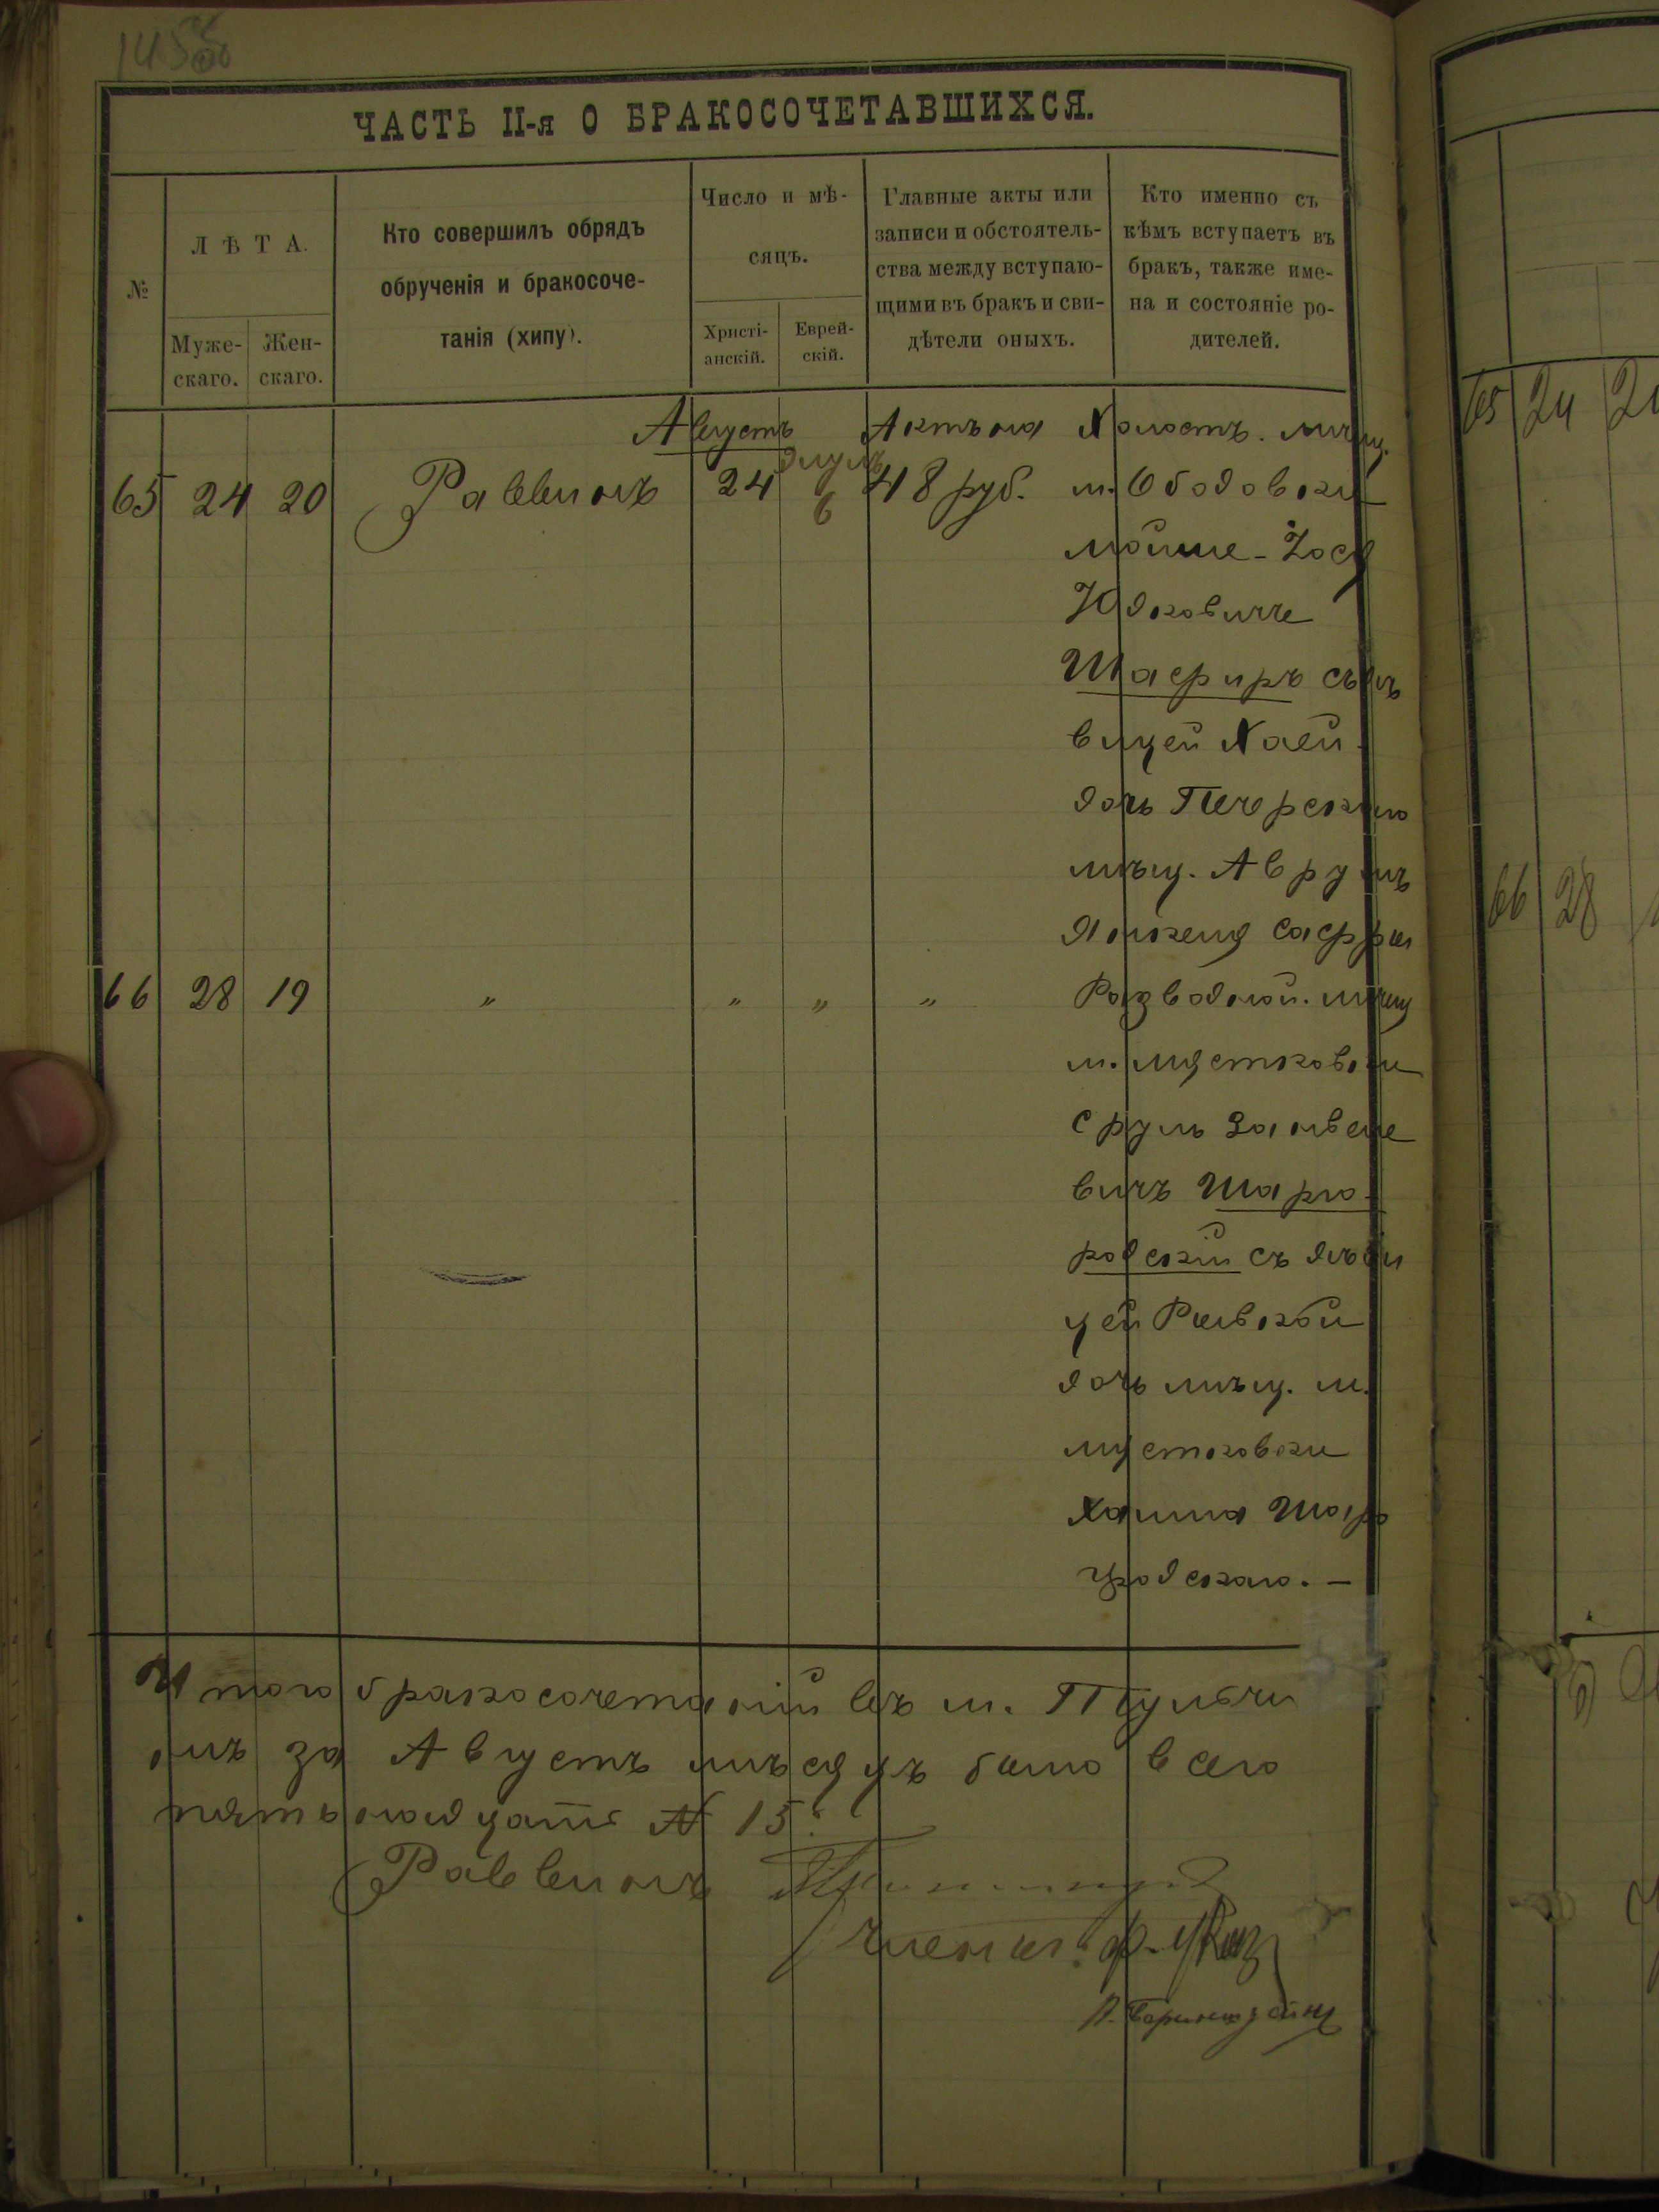 ЧАСТЬ II-я О БРАКОСОЧЕТАВШИХСЯ.
№
ЛѢТА.
Муже-
скаго.
Жен-
скаго.
Кто совершилъ обрядъ
обрученія и бракосоче-
танія (хипу).
Число и мѣ-
сяцъ.
Христі-
анскій.
Еврей-
скій.
Главные акты или
записи и обстоятель-
ства между вступаю-
щими въ бракъ и сви-
дѣтели оныхъ.
Кто именно съ
кѣмъ вступаетъ въ
бракъ, также име-
на и состояніе ро-
дителей.
Августъ Элулъ Актъ на Холостъ. мѣщ.
65 24 20 Раввинъ 24 6 48 руб. м. Ободовки
Мойше-Іось
Юдковиче
Шафиръ съ дѣ
вицей Хаей
дочь Печерскаго
мѣщ. Аврумъ
66 28 19 " " " " Разводной. мѣщ
м. Мястковки
Сруль Занвеле
вичъ Шарго
родскій съ дѣви
цей Ривкой
дочь мѣщ. м.
Мястковки
Хаима Шар
городскаго. —
Итого бракосочетаній въ м. Тульчи
нѣ за Августъ мѣсяцъ было всего
пятьнадцать № 15.
Раввинъ
Члены:
65 24
66 28